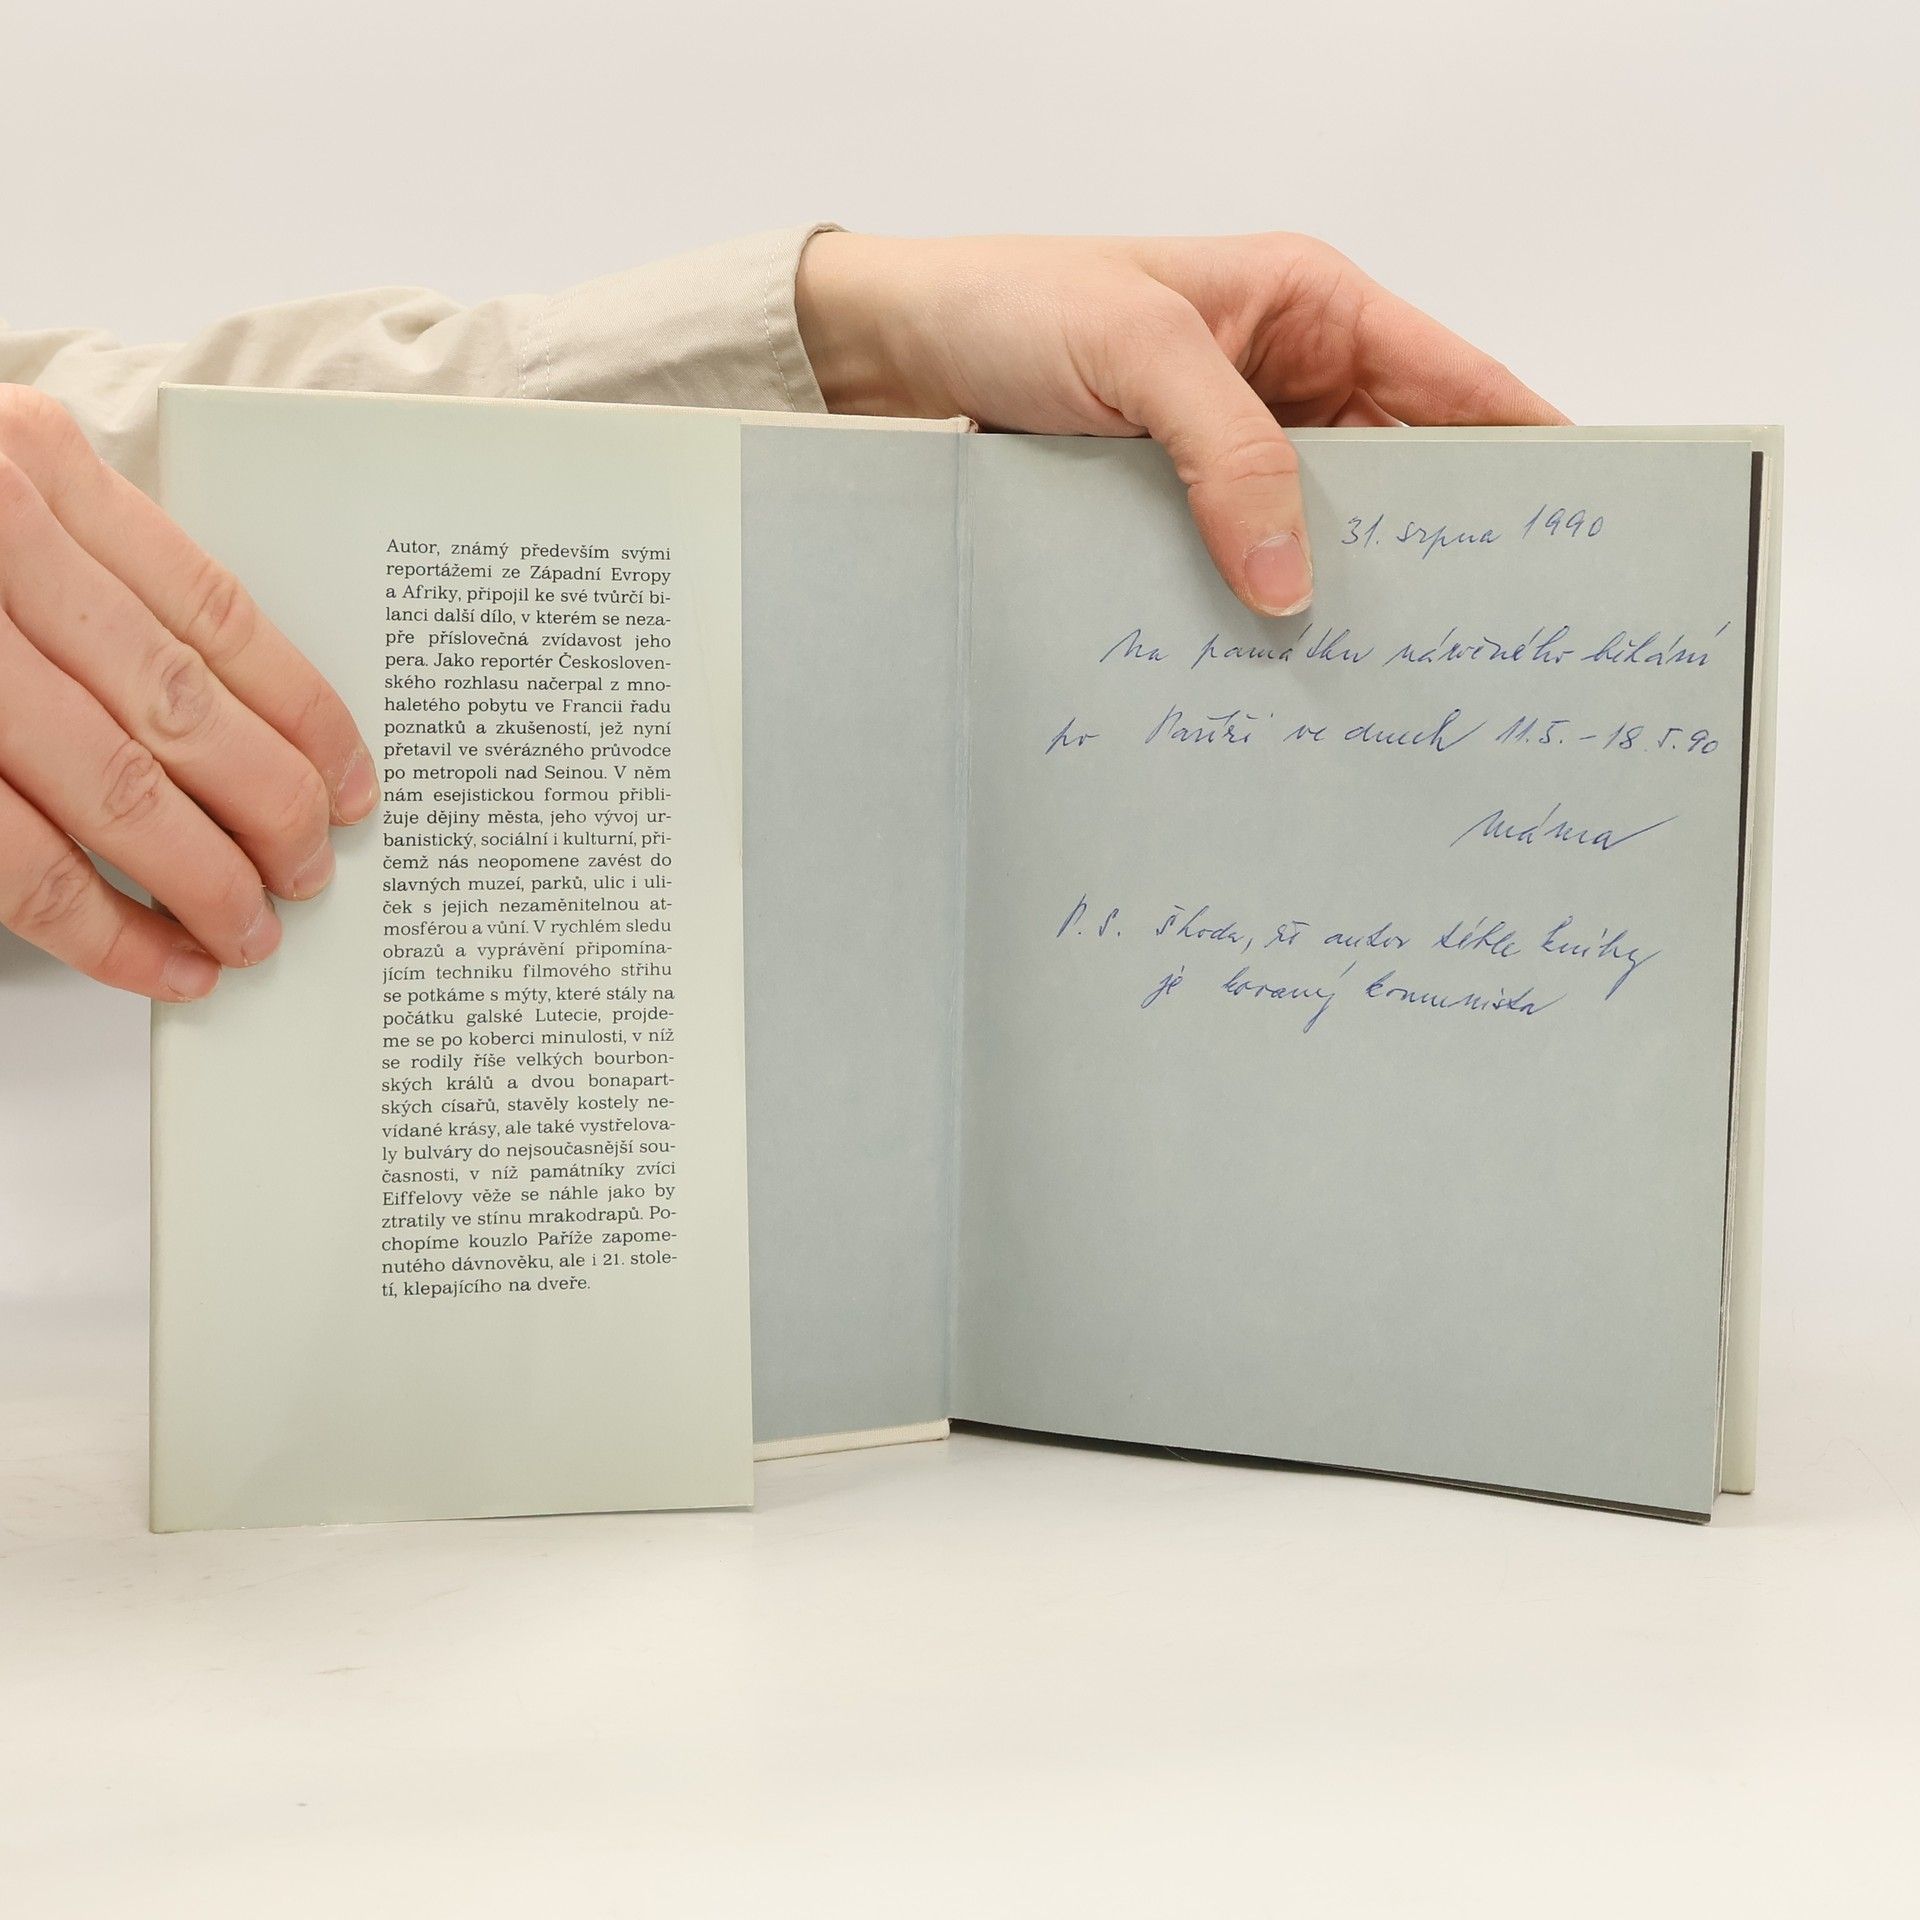 Autor, známý především svými
reportážemi ze Západní Evropy
a Afriky, připojil ke své tvůrčí bi-
lanci další dílo, v kterém se neza-
pře příslovečná zvídavost jeho
pera. Jako reportér Českosloven-
ského rozhlasu načerpal z mno-
haletého pobytu ve Francii řadu
poznatků a zkušeností, jež nyní
přetavil ve svérázného průvodce
po metropoli nad Seinou. V něm
nám esejistickou formou přibli-
žuje dějiny města, jeho vývoj ur-
banistický, sociální i kulturní, při-
čemž nás neopomene zavést do
slavných muzeí, parků, ulic i uli-
ček s jejich nezaměnitelnou at-
mosférou a vůní. V rychlém sledu
obrazů a vyprávění připomína-
jícím techniku filmového střihu
se potkáme s mýty, které stály na
počátku galské Lutecie, projde-
me se po koberci minulosti, v níž
se rodily říše velkých bourbon-
ských králů a dvou bonapart-
ských císařů, stavěly kostely ne-
vídané krásy, ale také vystřelova-
ly bulváry do nejsoučasnější sou-
časnosti, v níž památníky zvíci
Eiffelovy věže se náhle jako by
ztratily ve stínu mrakodrapů. Po-
chopíme kouzlo Paříže zapome-
nutého dávnověku, ale i 21. stole-
tí, klepajícího na dveře.
31. srpna 1990
Na památku náročného běhání
po Paříži ve dnech 11.5. – 18.5.90
máma
P.S. Škoda, že autor téhle knihy
je kovaný komunista